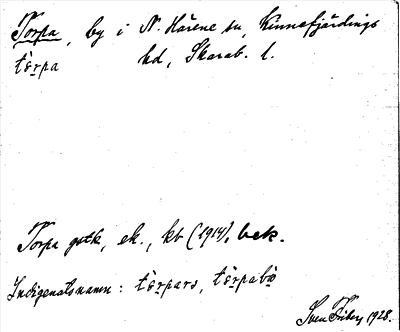 Torpa, by i N. Härene sn, Kinnefjärdings
tòrpa hd, Skarab. l.
Torpa gstk, ek., kb (1914), bek.
Indigenatsnamn: tòrpars, tòrpabò
Sven Friberg 1928.